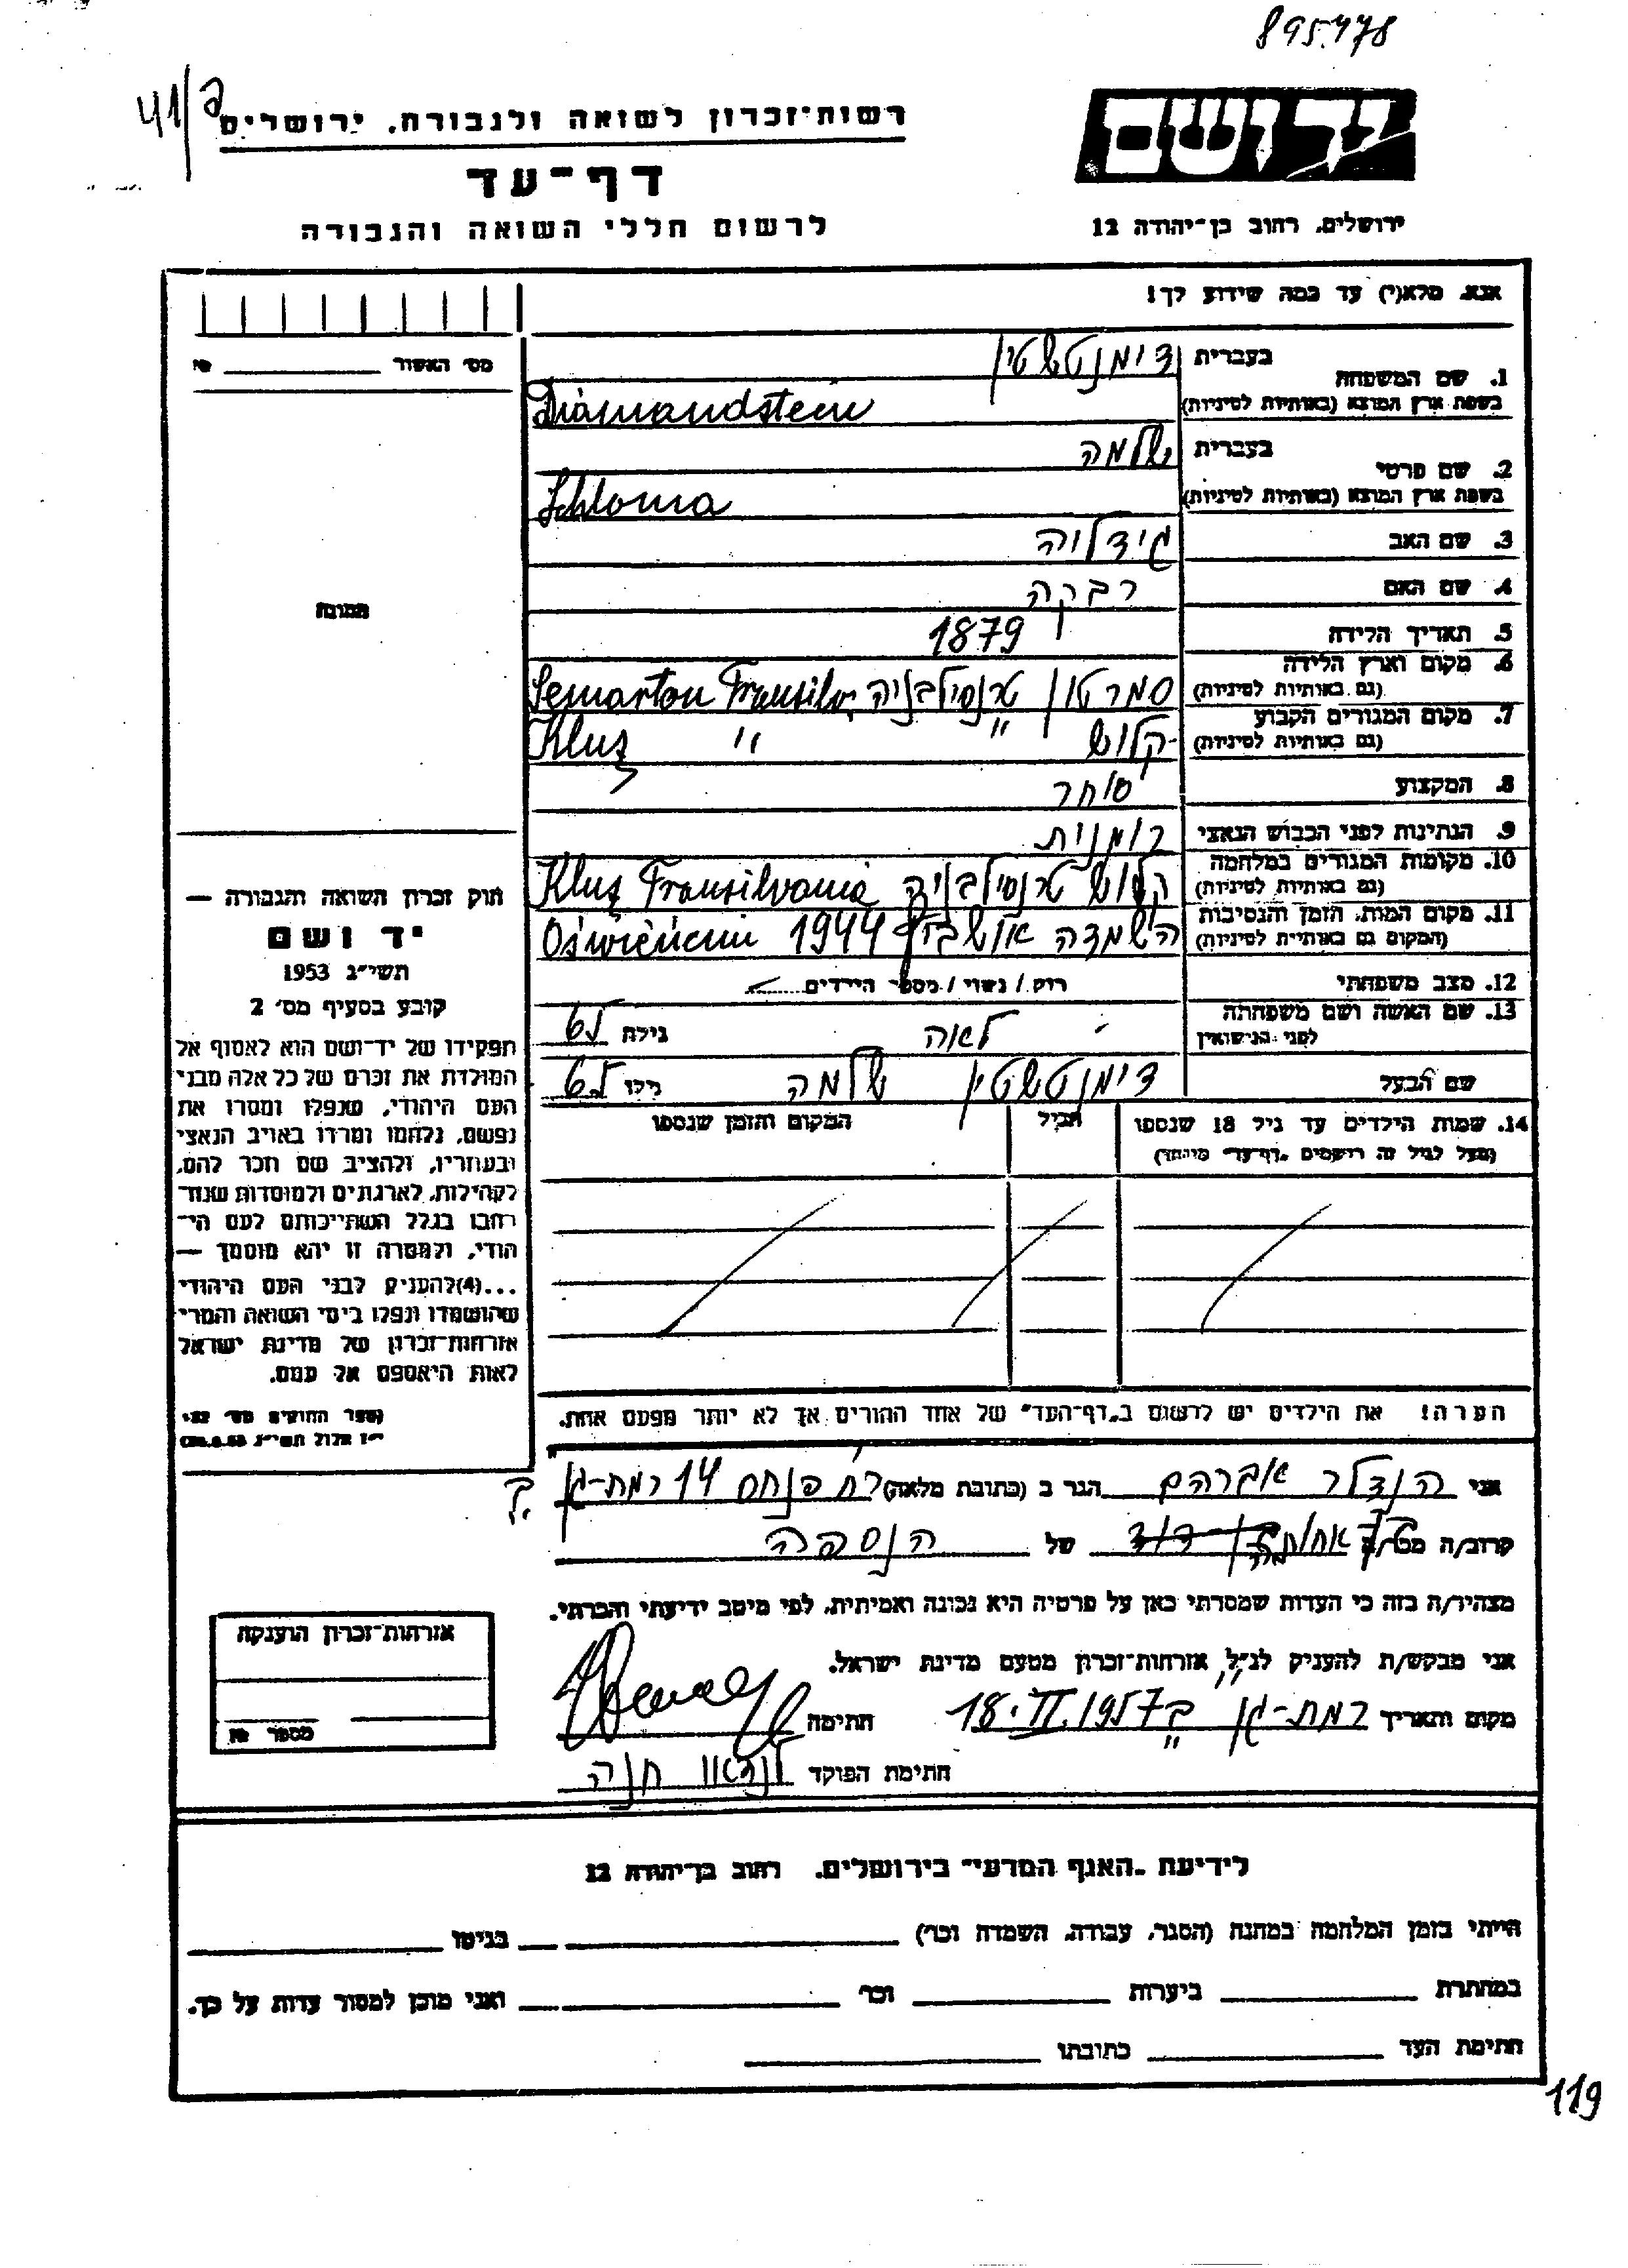 895.478
41/ג
רשות־זכרון לשואה ולגבורה, ירושלים
יד ושם
דף־עד
לרשום חללי השואה והגבורה
ירושלים, רחוב בן־יהודה 12
אנא, מלא(י) עד כמה שידוע לך!
מס׳ האשור
1. שם המשפחה
בעברית דימנטשטין
בשפת ארץ המוצא (באותיות לטיניות) Diamandstein
2. שם פרטי
בעברית שלמה
בשפת ארץ המוצא (באותיות לטיניות) Schloma
3. שם האב גידלויה
4. שם האם רבקה
5. תאריך הלידה 1879
6. מקום וארץ הלידה (גם באותיות לטיניות) סמרטון טרנסילבניה Semarton Transilv.
7. מקום המגורים הקבוע (גם באותיות לטיניות) קלוש " Kluș "
8. המקצוע סוחר
9. הנתינות לפני הכבוש הנאצי רומנית
10. מקומות המגורים במלחמה (גם באותיות לטיניות) קלוש טרנסילבניה Kluș Transilvania
11. מקום המות, הזמן והנסיבות (המקום גם באותיות לטיניות) השמדה אושביץ 1944 Oświęcim
12. מצב משפחתי רווק / נשוי / מספר הילדים
13. שם האשה ושם משפחתה לפני הנישואין לאה גילה 65
שם הבעל דימנטשטין שלמה גילו 65
14. שמות הילדים עד גיל 18 שנספו הגיל המקום והזמן שנספו
(מעל לגיל זה רושמים "דף־עד" מיוחד)
תמונה
חוק זכרון השואה והגבורה —
יד ושם
תשי״ג 1953
קובע בסעיף מס׳ 2
תפקידו של יד־ושם הוא לאסוף אל
המולדת את זכרם של כל אלה מבני
העם היהודי, שנפלו ומסרו את
נפשם, נלחמו ומרדו באויב הנאצי
ובעוזריו, ולהציב שם וזכר להם,
לקהילות, לארגונים ולמוסדות שנח־
רבו בגלל השתייכותם לעם הי־
הודי, ולמטרה זו יהא מוסמך —
...(4)להעניק לבני העם היהודי
שהושמדו ונפלו בימי השואה והמרי
אזרחות־זכרון של מדינת ישראל
לאות היאספם אל עמם.
הערה! את הילדים יש לרשום ב„דף־העד" של אחד ההורים אך לא יותר מפעם אחת.
אני הנדלר אברהם הגר ב (כתובת מלאה) רח׳ פנחס 14 רמת-גן
קרוב/ה של הנספה
מצהיר/ה בזה כי העדות שמסרתי כאן על פרטיה היא נכונה ואמיתית, לפי מיטב ידיעתי והכרתי.
אני מבקש/ת להעניק לנ״ל, אזרחות־זכרון מטעם מדינת ישראל.
מקום ותאריך רמת-גן 18.II.1957 חתימה
חתימת הפוקד לנדאו חנה
אזרחות־זכרון הוענקה
מספר
לידיעת „האגף המדעי" בירושלים, רחוב בן־יהודה 12
הייתי בזמן המלחמה במחנה (הסגר, עבודה, השמדה וכו׳) בגיטו
במחתרת ביערות וכו׳ ואני מוכן למסור עדות על כך.
חתימת העד כתובתו
119